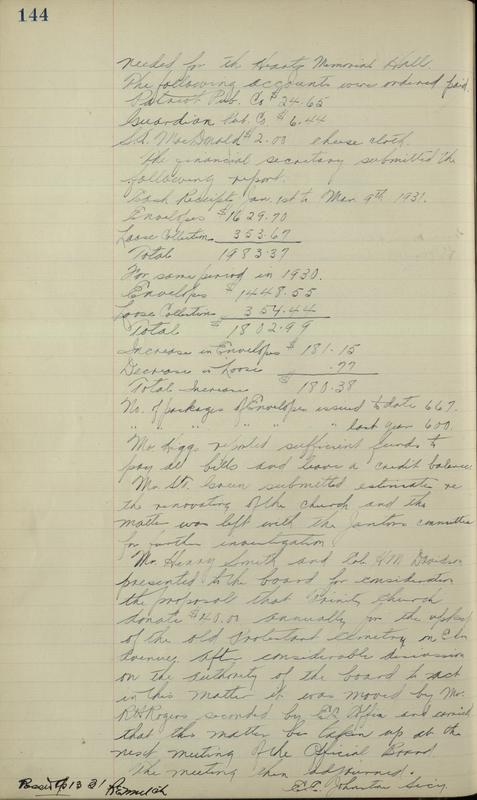 144
needed for the Heartz Memorial Hall.
The following accounts were ordered paid.
Patriot Pub. Co $24.65
Guardian Pub. Co $6.44
S.A. MacDonald $2.00 cheese cloth.
The financial secretary submitted the
following report.
Cash Receipts Jan. 1st to Mar 9th, 1931.
Envelopes $1629.70
Loose Collections 353.67
Total 1983.37
For same period in 1930.
Envelopes $1448.55
Loose Collections 354.44
Total $1802.99
Increase in Envelopes $181.15
Decrease in Loose .77
Total Increase $180.38
No. of packages of Envelopes issued to date 667.
" " " " " " last year 600.
Mr. Higgs reported sufficient funds to
pay all bills and leave a credit balance
Mr. submitted estimates re
the renovating of the church and the
matter was left with the janitors committee
for further investigation.
Mr. Henry Smith and Col. Davidson
presented to the board for consideration
the proposal that Trinity Church
donate $40.00 annually for the upkeep
of the old Protestant Cemetery on Elm
Avenue. After considerable discussion
on the authority of the board to act
in this matter it was moved by Mr.
R H Rogers seconded by and carried
that this matter be taken up at the
next meeting of the Official Board
The meeting then adjourned.
E.E. Johnston Secy.